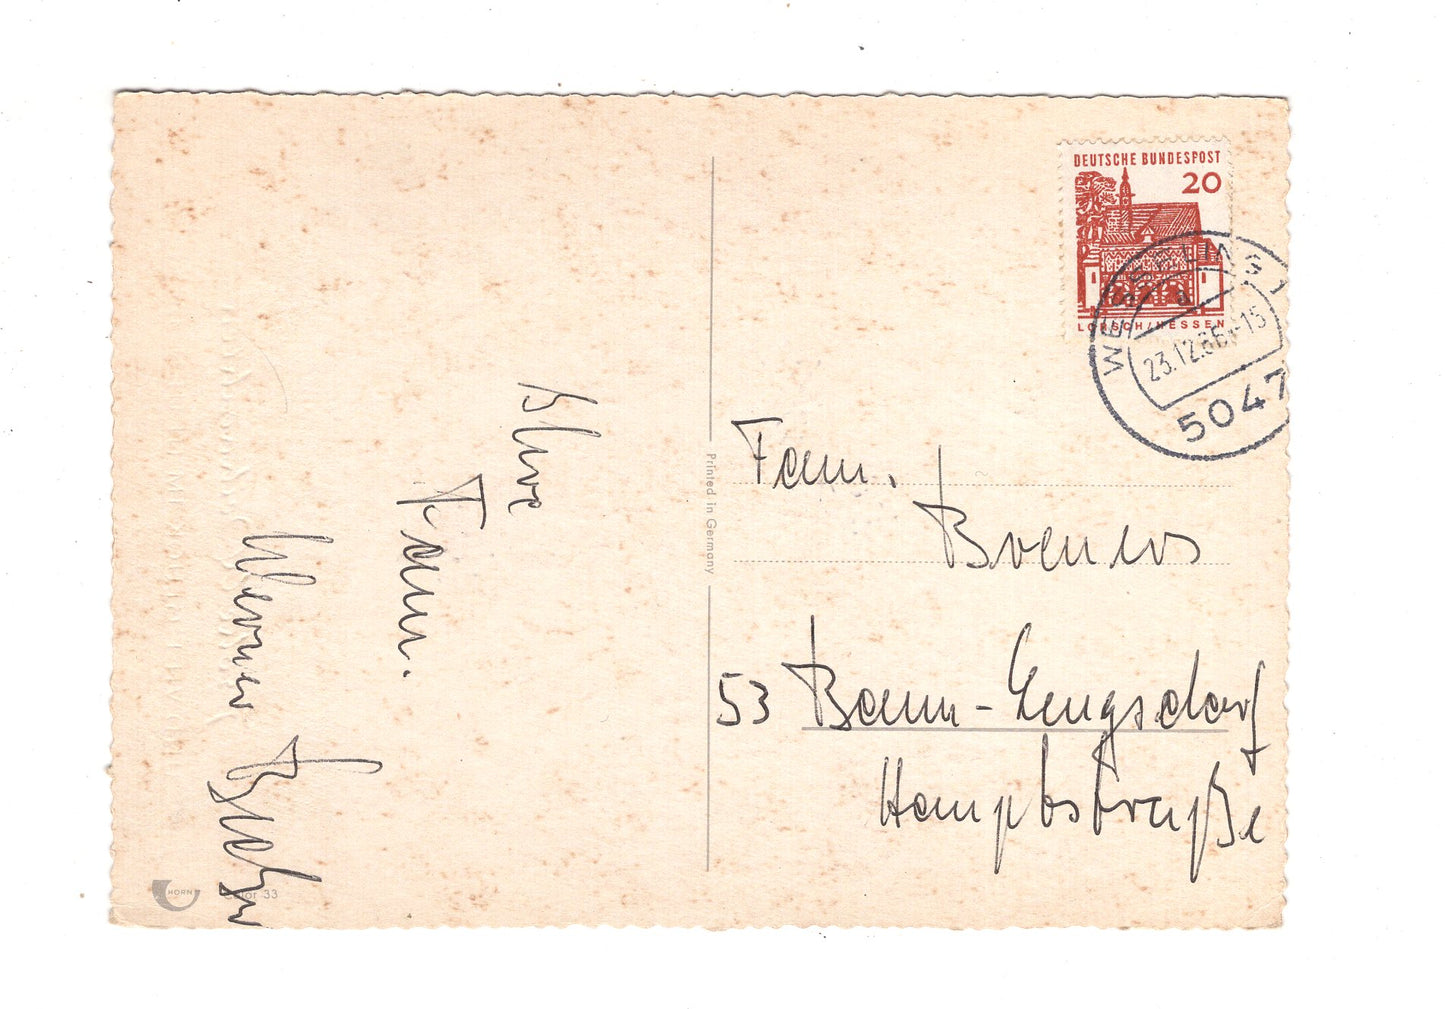 DEUTSCHE BUNDESPOST
20
LORSCH/HESSEN
WESSELING 1
a
23.12.66-15
5047
Printed in Germany
Fam.
53 Bonn-Lengsdorf
Hauptstraße
Ihre
Fam.
Werner
HORN
Color 33